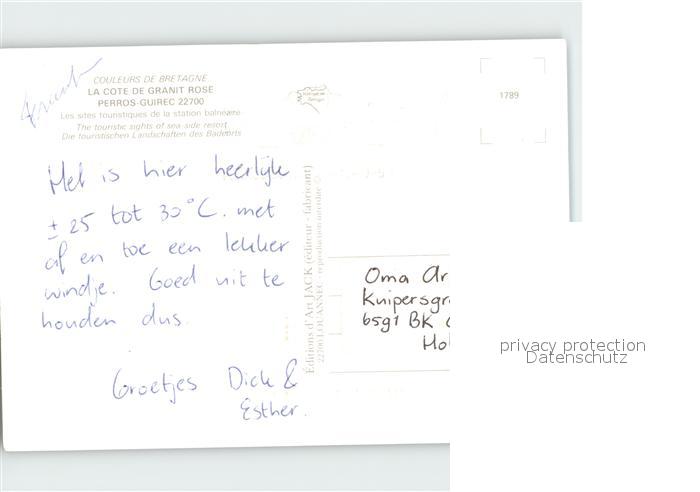 COULEURS DE BRETAGNE
LA COTE DE GRANIT ROSE
PERROS-GUIREC 22700
Les sites touristiques de la station balnéaire
The touristic sights of sea-side resort
Die touristischen Landschaften des Badeorts
1789
Het is hier heerlijk
± 25 tot 30°C. met
af en toe een lekker
windje. Goed uit te
houden dus.
Groetjes Dick &
Esther.
Editions d'Art JACK (éditeur - fabricant)
22700 LOUANNEC - reproduction interdite
Oma Ar
Kuipersgr
6591 BK
Hol
privacy protection
Datenschutz